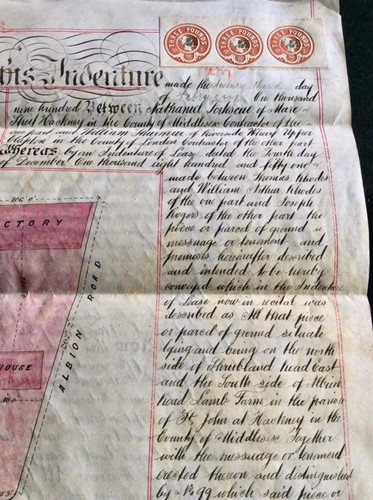 THREE POUNDS THREE POUNDS THREE POUNDS
This Indenture made the day
of One thousand
nine hundred Between Nathaniel of Mare
Street Hackney in the County of Middlesex Contractor of the
one part and William of Riverside Wharf Upper
Clapton in the County of London Contractor of the other part
Whereas by an Indenture of Lease dated the fourth day
of December One thousand eight hundred and fifty one
made between Thomas Rhodes
and William Arthur Rhodes
of the one part and Joseph
Rogers of the other part the
piece or parcel of ground a
messuage or tenement and
premises hereinafter described
and intended to be hereby
conveyed which in the Indenture
of Lease now in recital was
described as All that piece
or parcel of ground situate
lying and being on the north
side of Shrubland Road East
and the South side of Albion
Road Lamb Farm in the parish
of St. John at Hackney in the
County of Middlesex Together
with the messuage or tenement
erected thereon and distinguished
by No 99 which said piece or
CTORY
ALBION ROAD
HOUSE